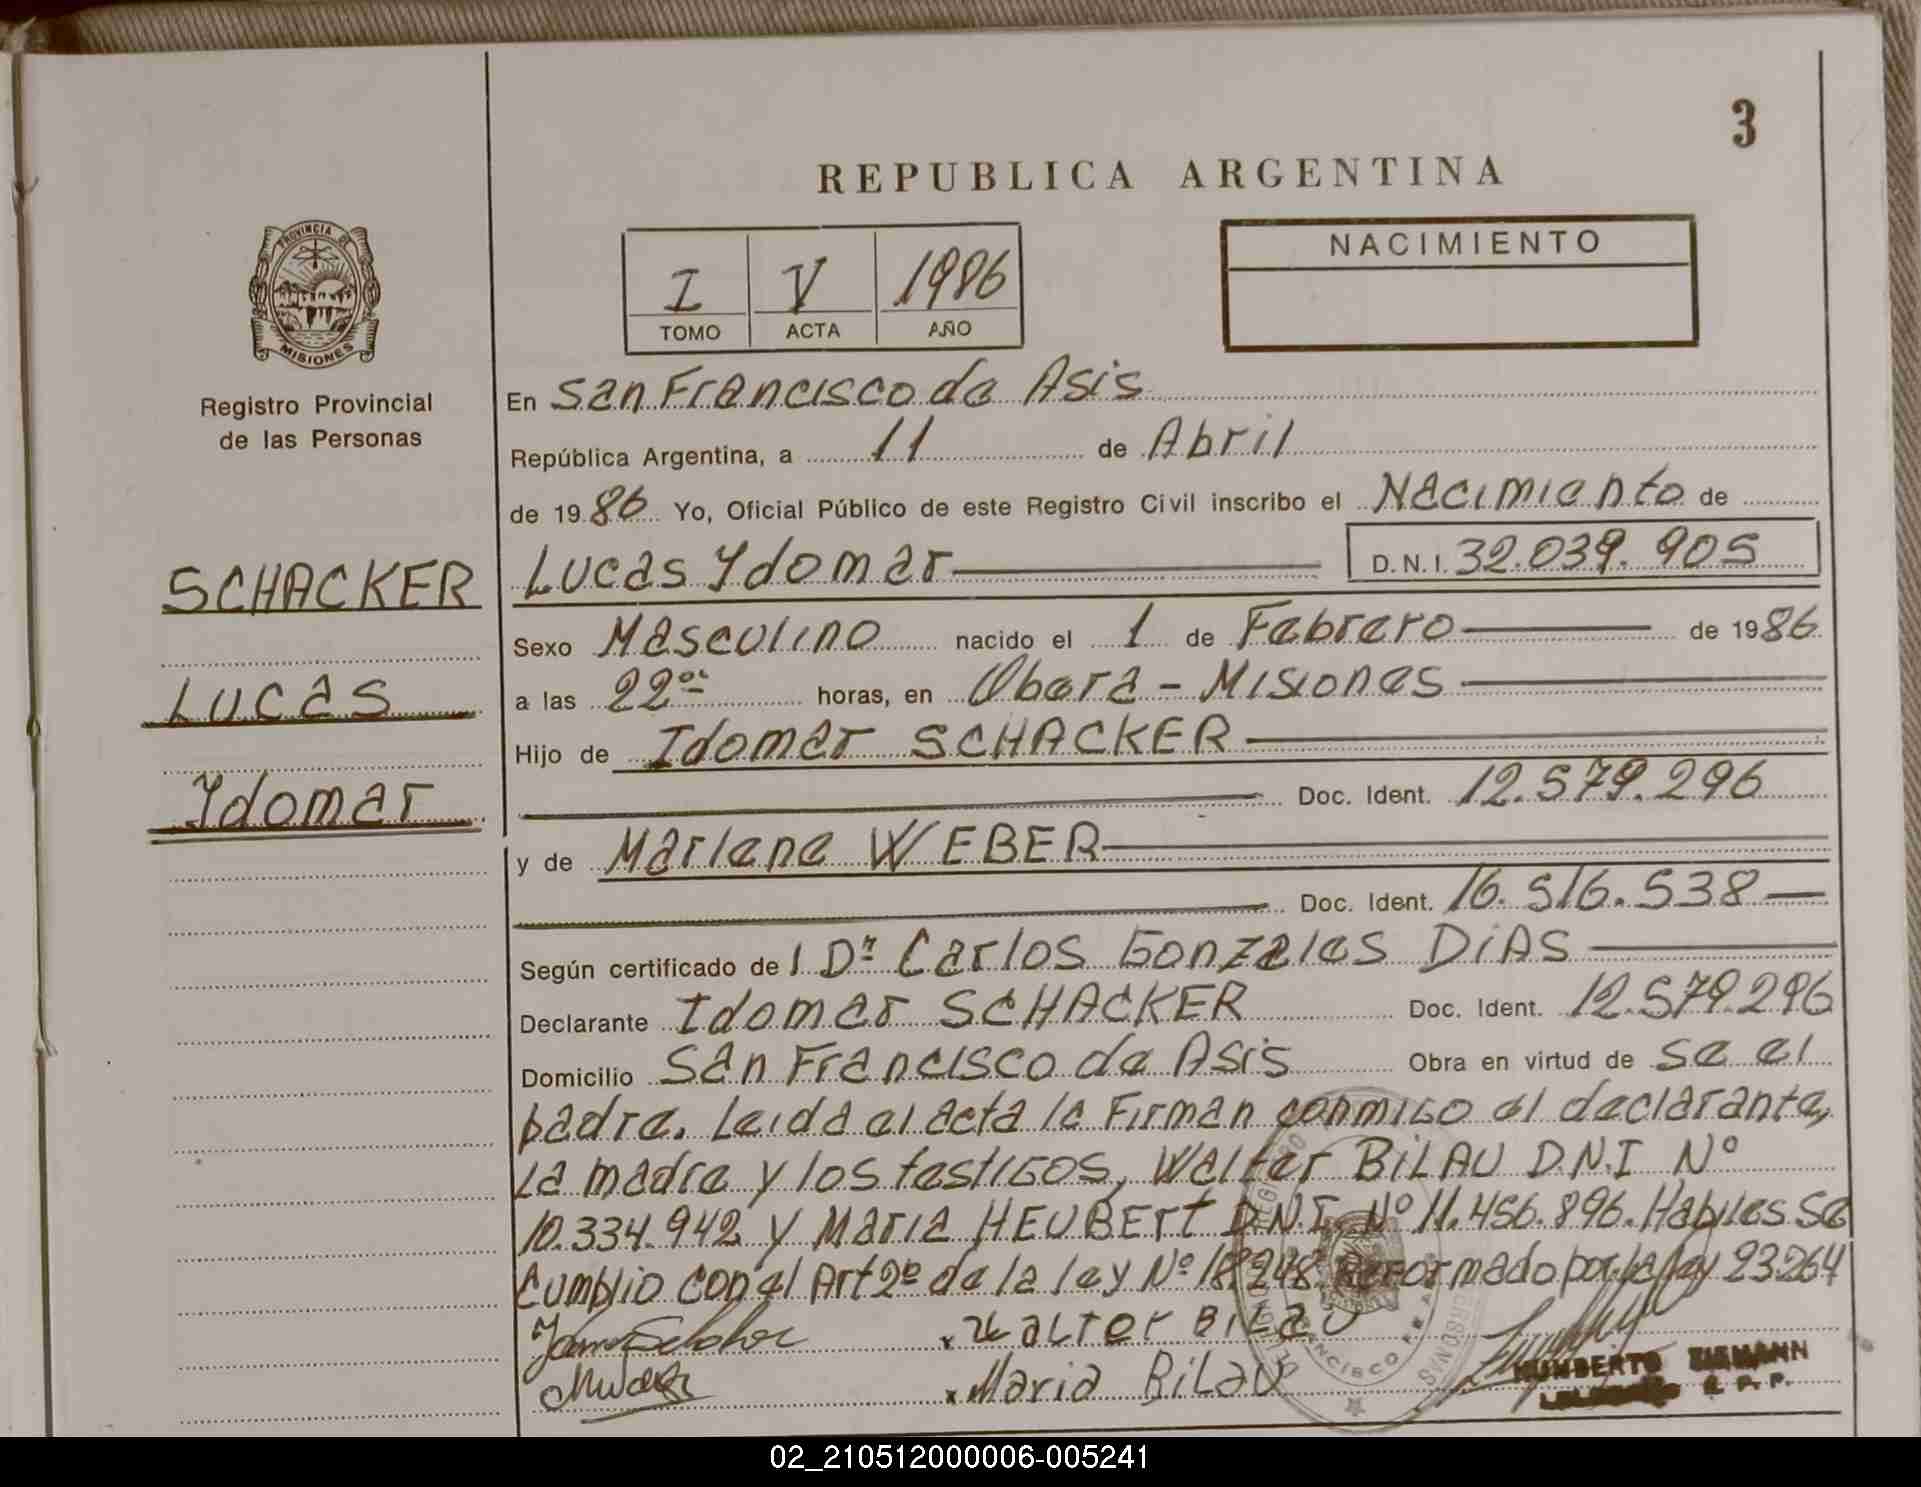 3
REPUBLICA ARGENTINA
PROVINCIA DE
MISIONES
Registro Provincial
de las Personas
I V 1986
TOMO ACTA AÑO
NACIMIENTO
SCHACKER
Lucas
Ydomar
En San Francisco de Asis
República Argentina, a 11 de Abril
de 1986 Yo, Oficial Público de este Registro Civil inscribo el Nacimiento de
Lucas Ydomar D.N.I. 32.039.905
Sexo Masculino nacido el 1 de Febrero de 1986
a las 22 horas, en Obera - Misiones
Hijo de Idomar SCHACKER
Doc. Ident. 12.579.296
y de Marlene WEBER
Doc. Ident. 16.516.538
Según certificado de l Dr Carlos Gonzales DiAS
Declarante Idomar SCHACKER Doc. Ident. 12.579.296
Domicilio San Francisco de Asis Obra en virtud de se el
padre. Leida el acta la Firman conmigo el declarante,
La madre y los testigos, Walter BiLAU D.N.I Nº
10.334.942 y Maria HEUBErt D.N.I. Nº 11.456.896. Habiles Se
Cumplio con el Art 2º de la ley Nº 18.248. Reformado por la ley 23.264
x Walter Bilau
x Maria Bilau
HUMBERTO ZIEMANN
R. P. P.
02_210512000006-005241